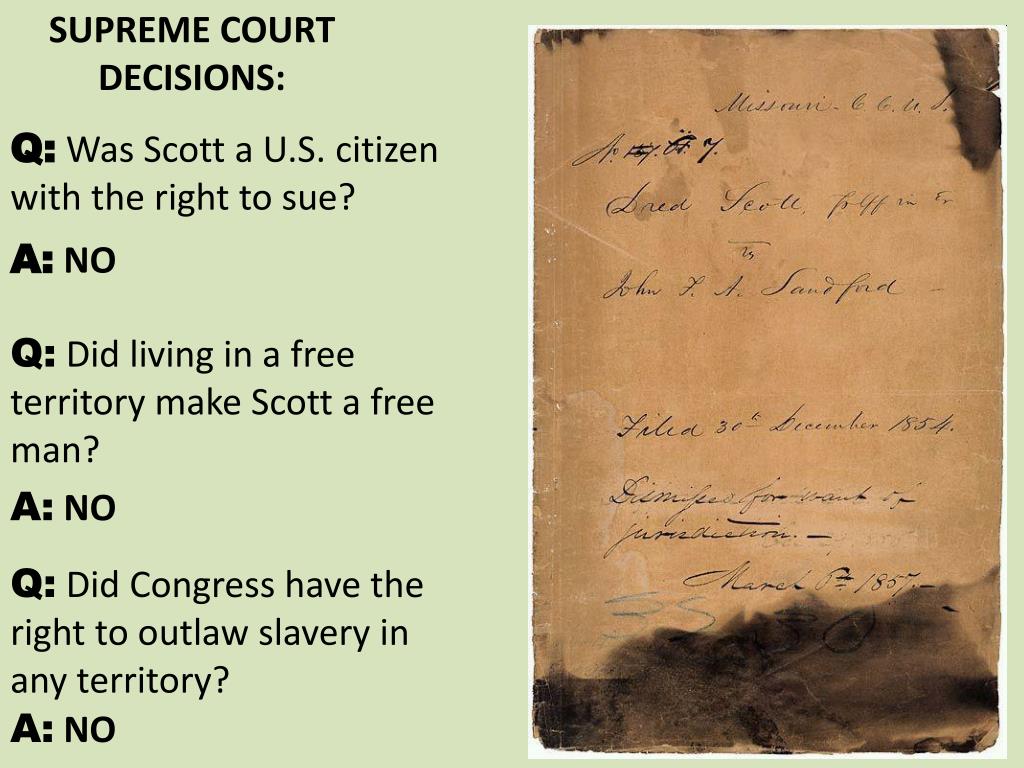 SUPREME COURT
DECISIONS:
Q: Was Scott a U.S. citizen
with the right to sue?
A: NO
Q: Did living in a free
territory make Scott a free
man?
A: NO
Q: Did Congress have the
right to outlaw slavery in
any territory?
A: NO
Missouri C. C. U. S.
No. 7.
Dred Scott, Plff in Er
vs
John F. A. Sandford
Filed 30th December 1854.
Dismissed for want of
jurisdiction. —
March 6th 1857. —